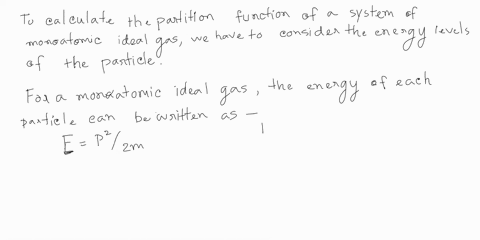 To calculate the partition function of a system of
monoatomic ideal gas, we have to consider the energy levels
of the particle.
For a monoatomic ideal gas, the energy of each
particle can be written as —
E = P²/2m